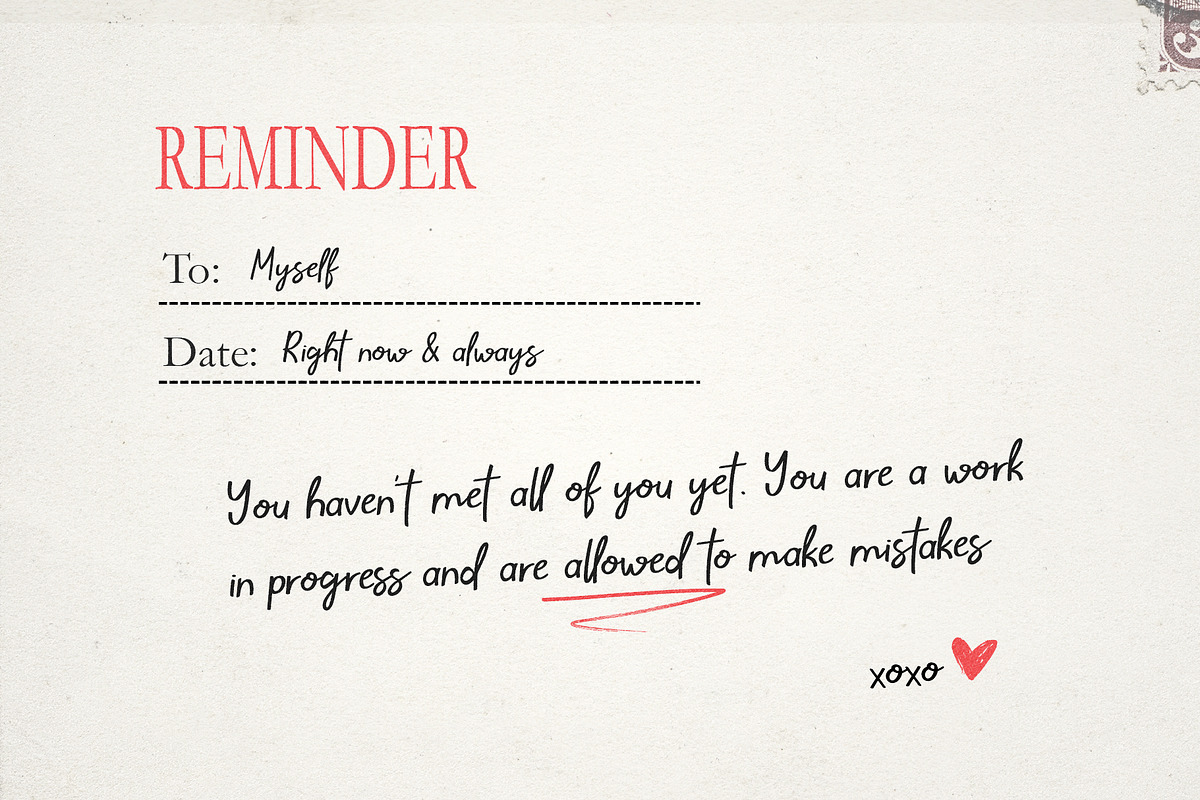 REMINDER
To: Myself
Date: Right now & always
You haven't met all of you yet. You are a work
in progress and are allowed to make mistakes
xoxo